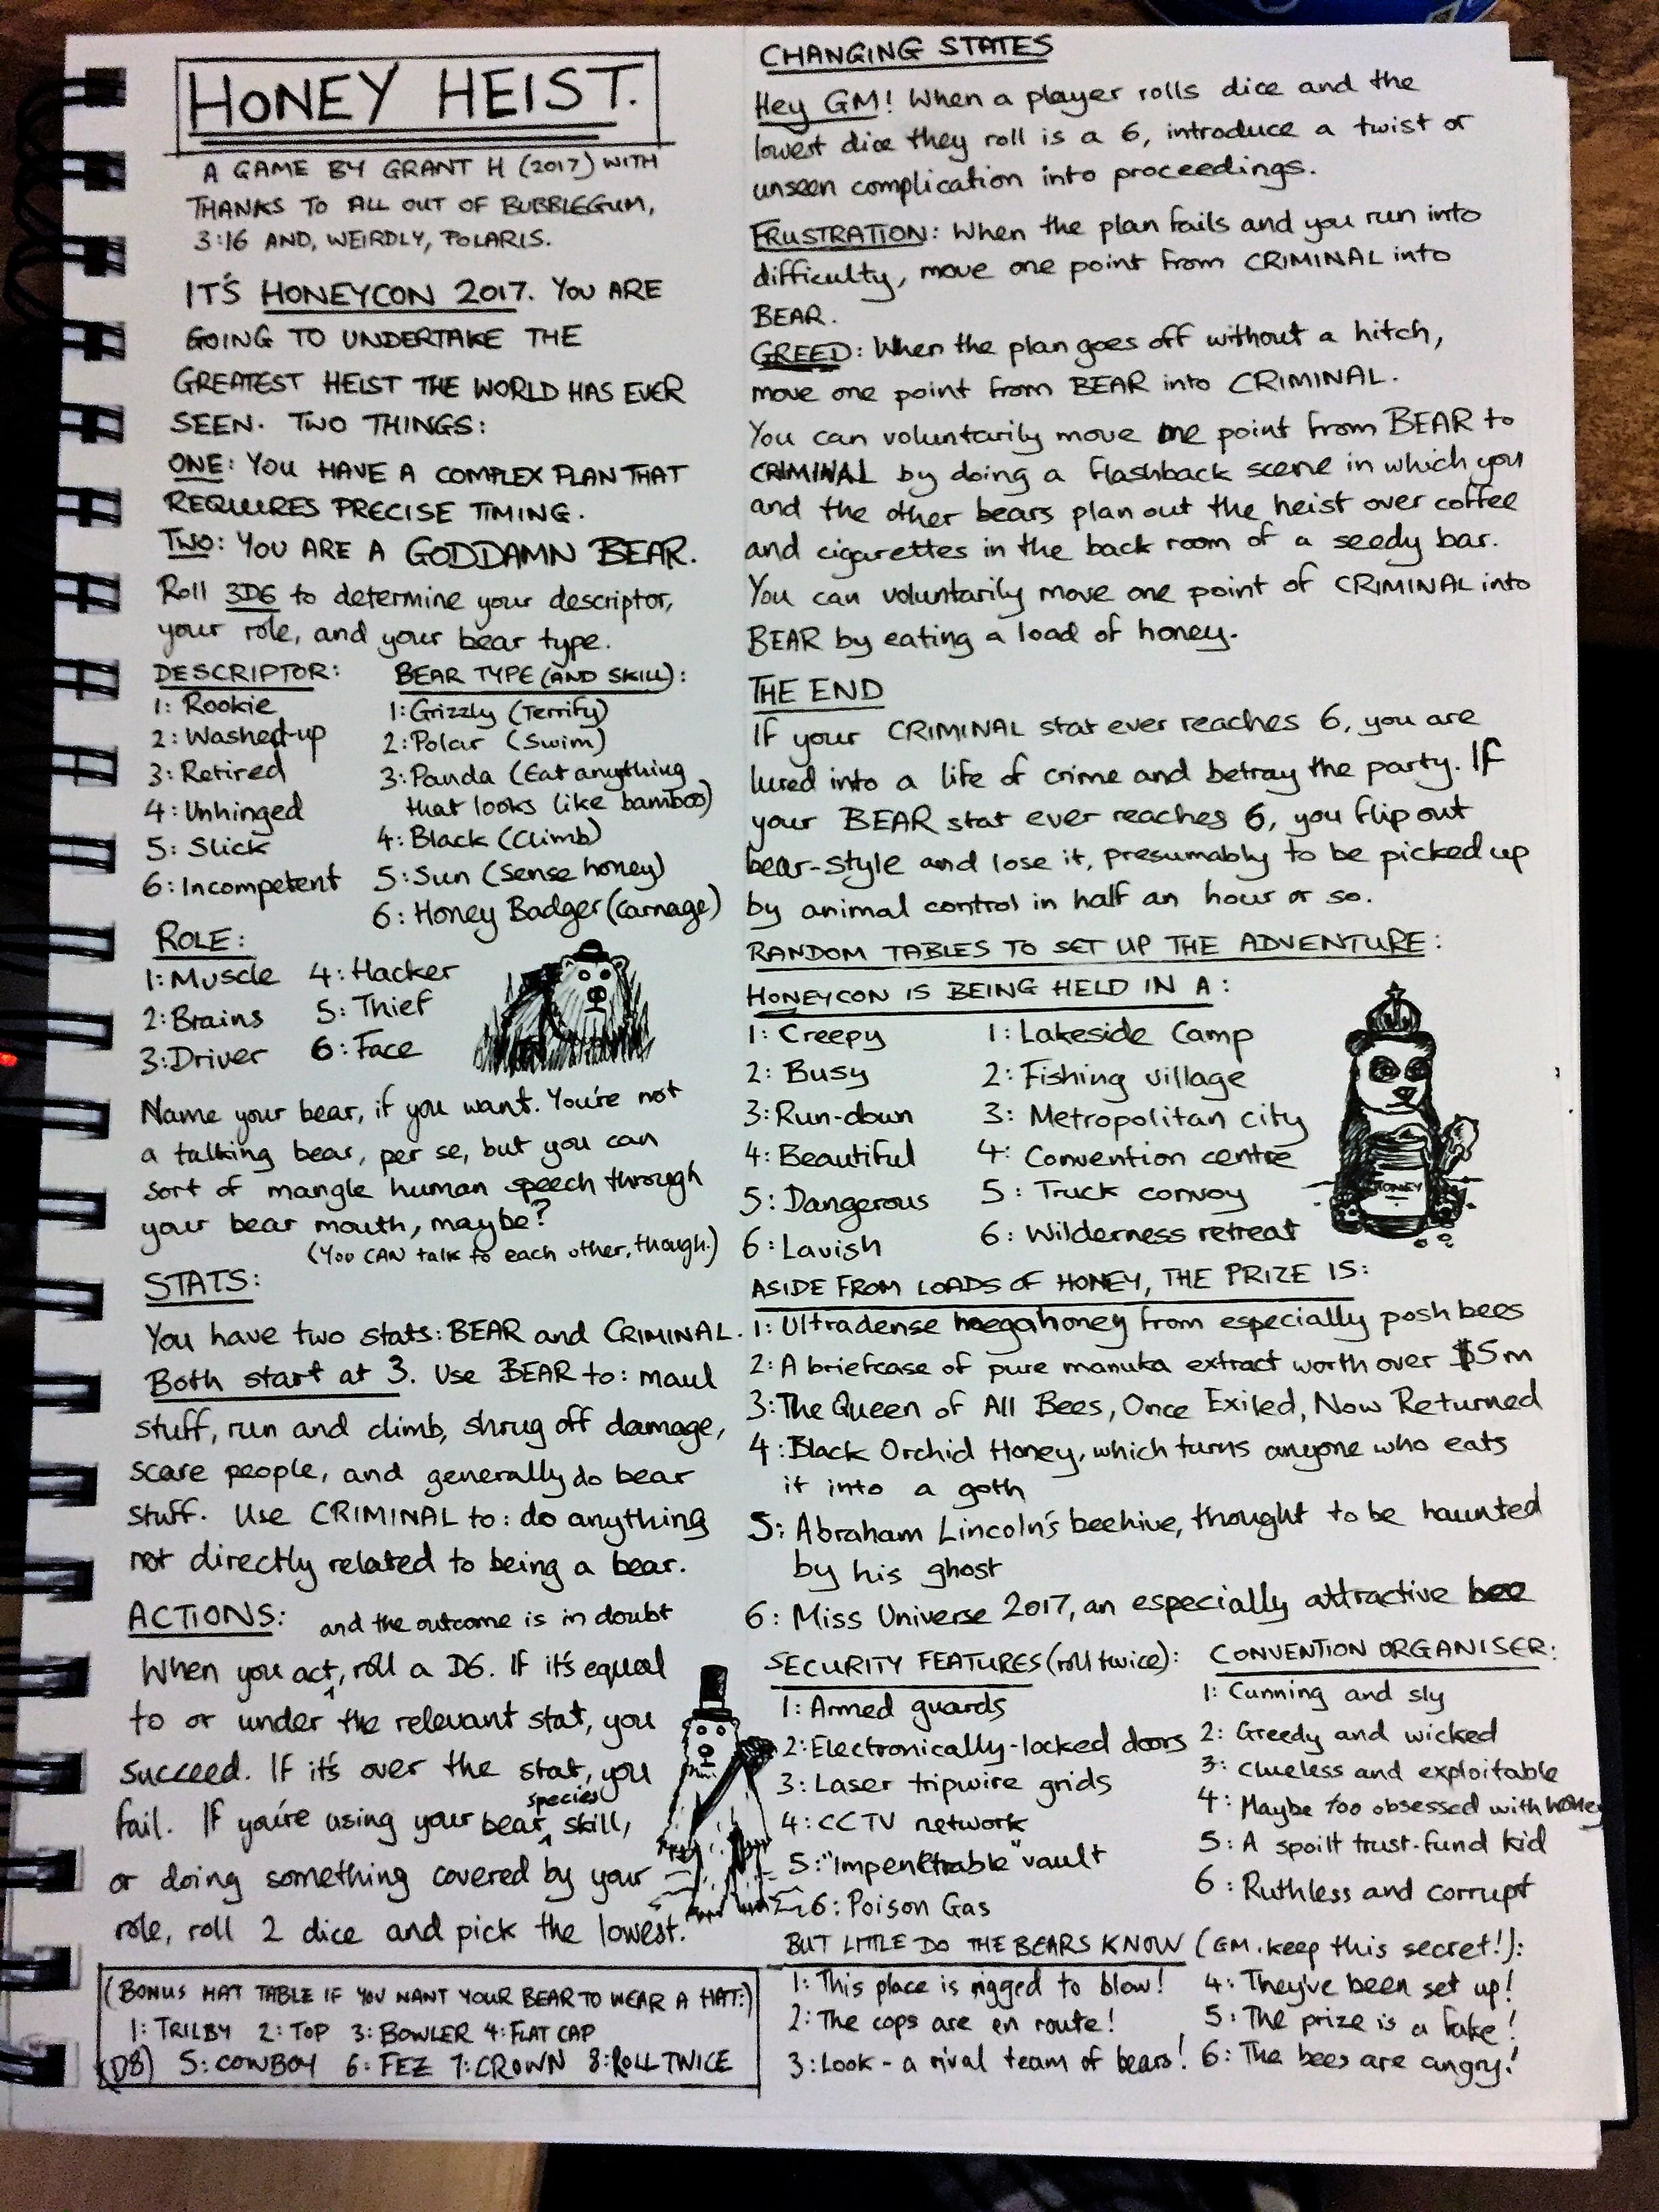 HONEY HEIST.
A GAME BY GRANT H (2017) WITH
THANKS TO ALL OUT OF BUBBLEGUM,
3:16 AND, WEIRDLY, POLARIS.
IT'S HONEYCON 2017. YOU ARE
GOING TO UNDERTAKE THE
GREATEST HEIST THE WORLD HAS EVER
SEEN. TWO THINGS:
ONE: YOU HAVE A COMPLEX PLAN THAT
REQUIRES PRECISE TIMING.
TWO: YOU ARE A GODDAMN BEAR.
Roll 3D6 to determine your descriptor,
your role, and your bear type.
DESCRIPTOR:
1: Rookie
2: Washed-up
3: Retired
4: Unhinged
5: Slick
6: Incompetent
BEAR TYPE (AND SKILL):
1: Grizzly (Terrify)
2: Polar (Swim)
3: Panda (Eat anything
that looks like bamboo)
4: Black (Climb)
5: Sun (Sense honey)
6: Honey Badger (Carnage)
ROLE:
1: Muscle 4: Hacker
2: Brains 5: Thief
3: Driver 6: Face
Name your bear, if you want. You're not
a talking bear, per se, but you can
sort of mangle human speech through
your bear mouth, maybe?
(You CAN talk to each other, though.)
STATS:
You have two stats: BEAR and CRIMINAL.
Both start at 3. Use BEAR to: maul
stuff, run and climb, shrug off damage,
scare people, and generally do bear
stuff. Use CRIMINAL to: do anything
not directly related to being a bear.
ACTIONS: and the outcome is in doubt
When you act, roll a D6. If it's equal
to or under the relevant stat, you
succeed. If it's over the stat, you
species
fail. If you're using your bear skill,
or doing something covered by your
role, roll 2 dice and pick the lowest.
(BONUS HAT TABLE IF YOU WANT YOUR BEAR TO WEAR A HAT:)
1: TRILBY 2: TOP 3: BOWLER 4: FLAT CAP
(D8) 5: COWBOY 6: FEZ 7: CROWN 8: ROLL TWICE
CHANGING STATES
Hey GM! When a player rolls dice and the
lowest dice they roll is a 6, introduce a twist or
unseen complication into proceedings.
FRUSTRATION: When the plan fails and you run into
difficulty, move one point from CRIMINAL into
BEAR.
GREED: When the plan goes off without a hitch,
move one point from BEAR into CRIMINAL.
You can voluntarily move one point from BEAR to
CRIMINAL by doing a flashback scene in which you
and the other bears plan out the heist over coffee
and cigarettes in the back room of a seedy bar.
You can voluntarily move one point of CRIMINAL into
BEAR by eating a load of honey.
THE END
If your CRIMINAL stat ever reaches 6, you are
lured into a life of crime and betray the party. If
your BEAR stat ever reaches 6, you flip out
bear-style and lose it, presumably to be picked up
by animal control in half an hour or so.
RANDOM TABLES TO SET UP THE ADVENTURE:
HONEYCON IS BEING HELD IN A:
1: Creepy 1: Lakeside Camp
2: Busy 2: Fishing village
3: Run-down 3: Metropolitan city
4: Beautiful 4: Convention centre
5: Dangerous 5: Truck convoy
6: Lavish 6: Wilderness retreat
HONEY
ASIDE FROM LOADS OF HONEY, THE PRIZE IS:
1: Ultradense megahoney from especially posh bees
2: A briefcase of pure manuka extract worth over $5m
3: The Queen of All Bees, Once Exiled, Now Returned
4: Black Orchid Honey, which turns anyone who eats
it into a goth
5: Abraham Lincoln's beehive, thought to be haunted
by his ghost
6: Miss Universe 2017, an especially attractive bee
SECURITY FEATURES (roll twice):
1: Armed guards
2: Electronically-locked doors
3: Laser tripwire grids
4: CCTV network
5: "Impenetrable" vault
6: Poison Gas
CONVENTION ORGANISER:
1: Cunning and sly
2: Greedy and wicked
3: Clueless and exploitable
4: Maybe too obsessed with honey
5: A spoilt trust-fund kid
6: Ruthless and corrupt
BUT LITTLE DO THE BEARS KNOW (GM. keep this secret!):
1: This place is rigged to blow! 4: They've been set up!
2: The cops are en route! 5: The prize is a fake!
3: Look - a rival team of bears! 6: The bees are angry!